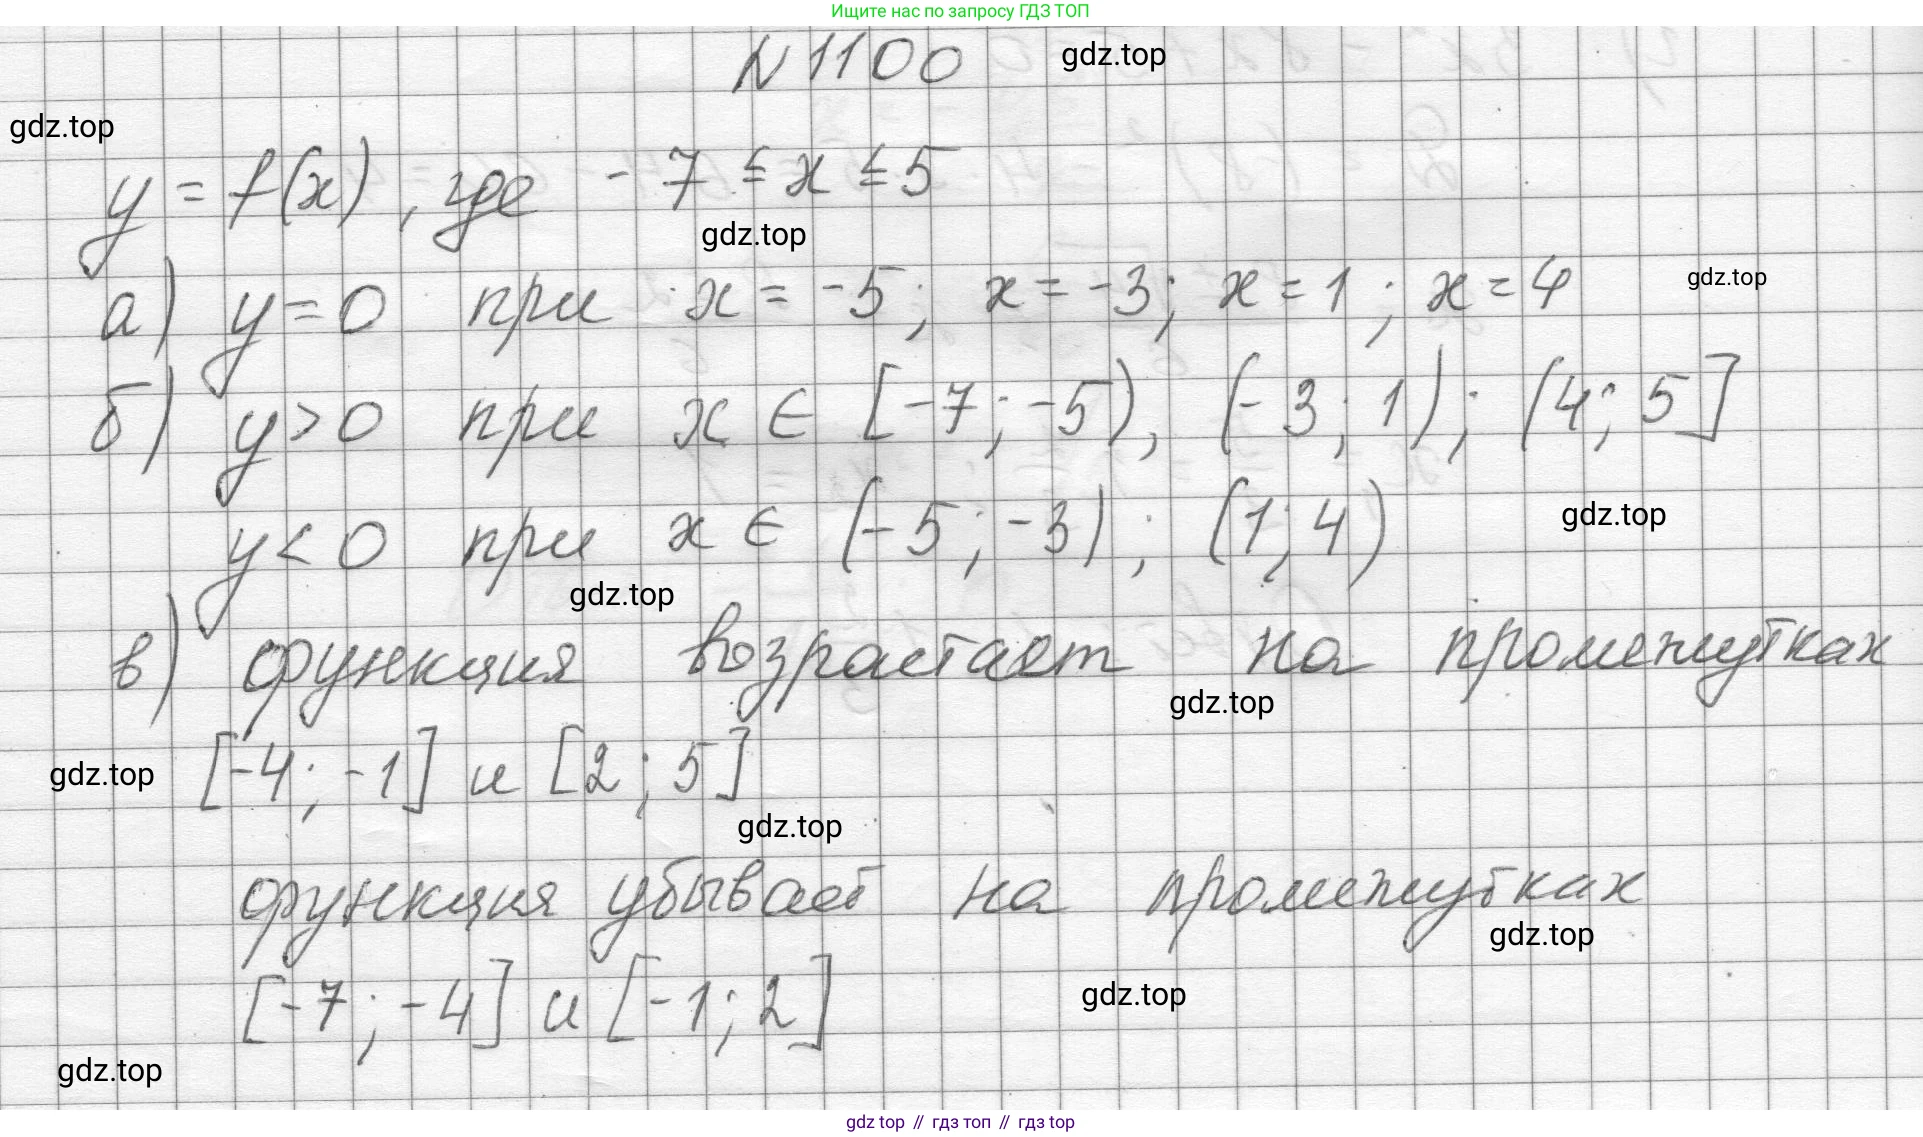 Ищите нас по запросу ГДЗ ТОП
N 1100
gdz.top
gdz.top
y = f(x), где -7 ≤ x ≤ 5
gdz.top
а) y = 0 при x = -5; x = -3; x = 1; x = 4
gdz.top
б) y > 0 при x ∈ [-7; -5), (-3; 1); (4; 5]
y < 0 при x ∈ (-5; -3); (1; 4)
gdz.top
gdz.top
в) функция возрастает на промежутках
gdz.top
[-4; -1] и [2; 5]
gdz.top
gdz.top
функция убывает на промежутках
gdz.top
[-7; -4] и [-1; 2]
gdz.top
gdz.top
gdz top // гдз топ // гдз top